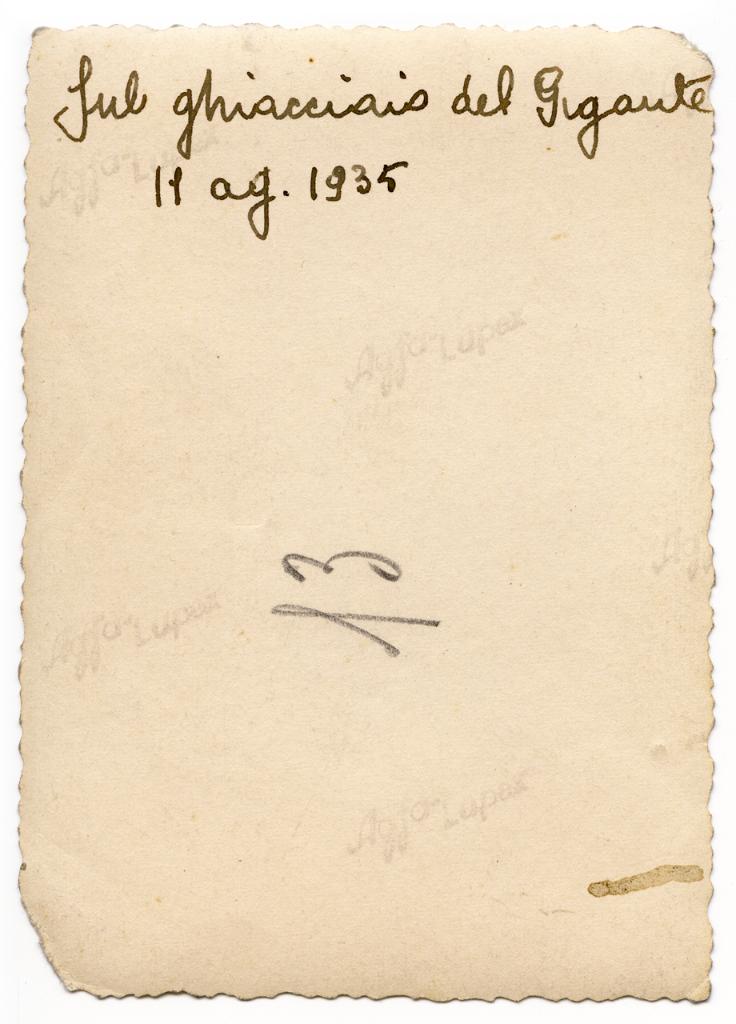 Sul ghiacciaio del Gigante
11 ag. 1935
Agfa-Lupex
Agfa-Lupex
13
Agfa-Lupex
Agfa-Lupex